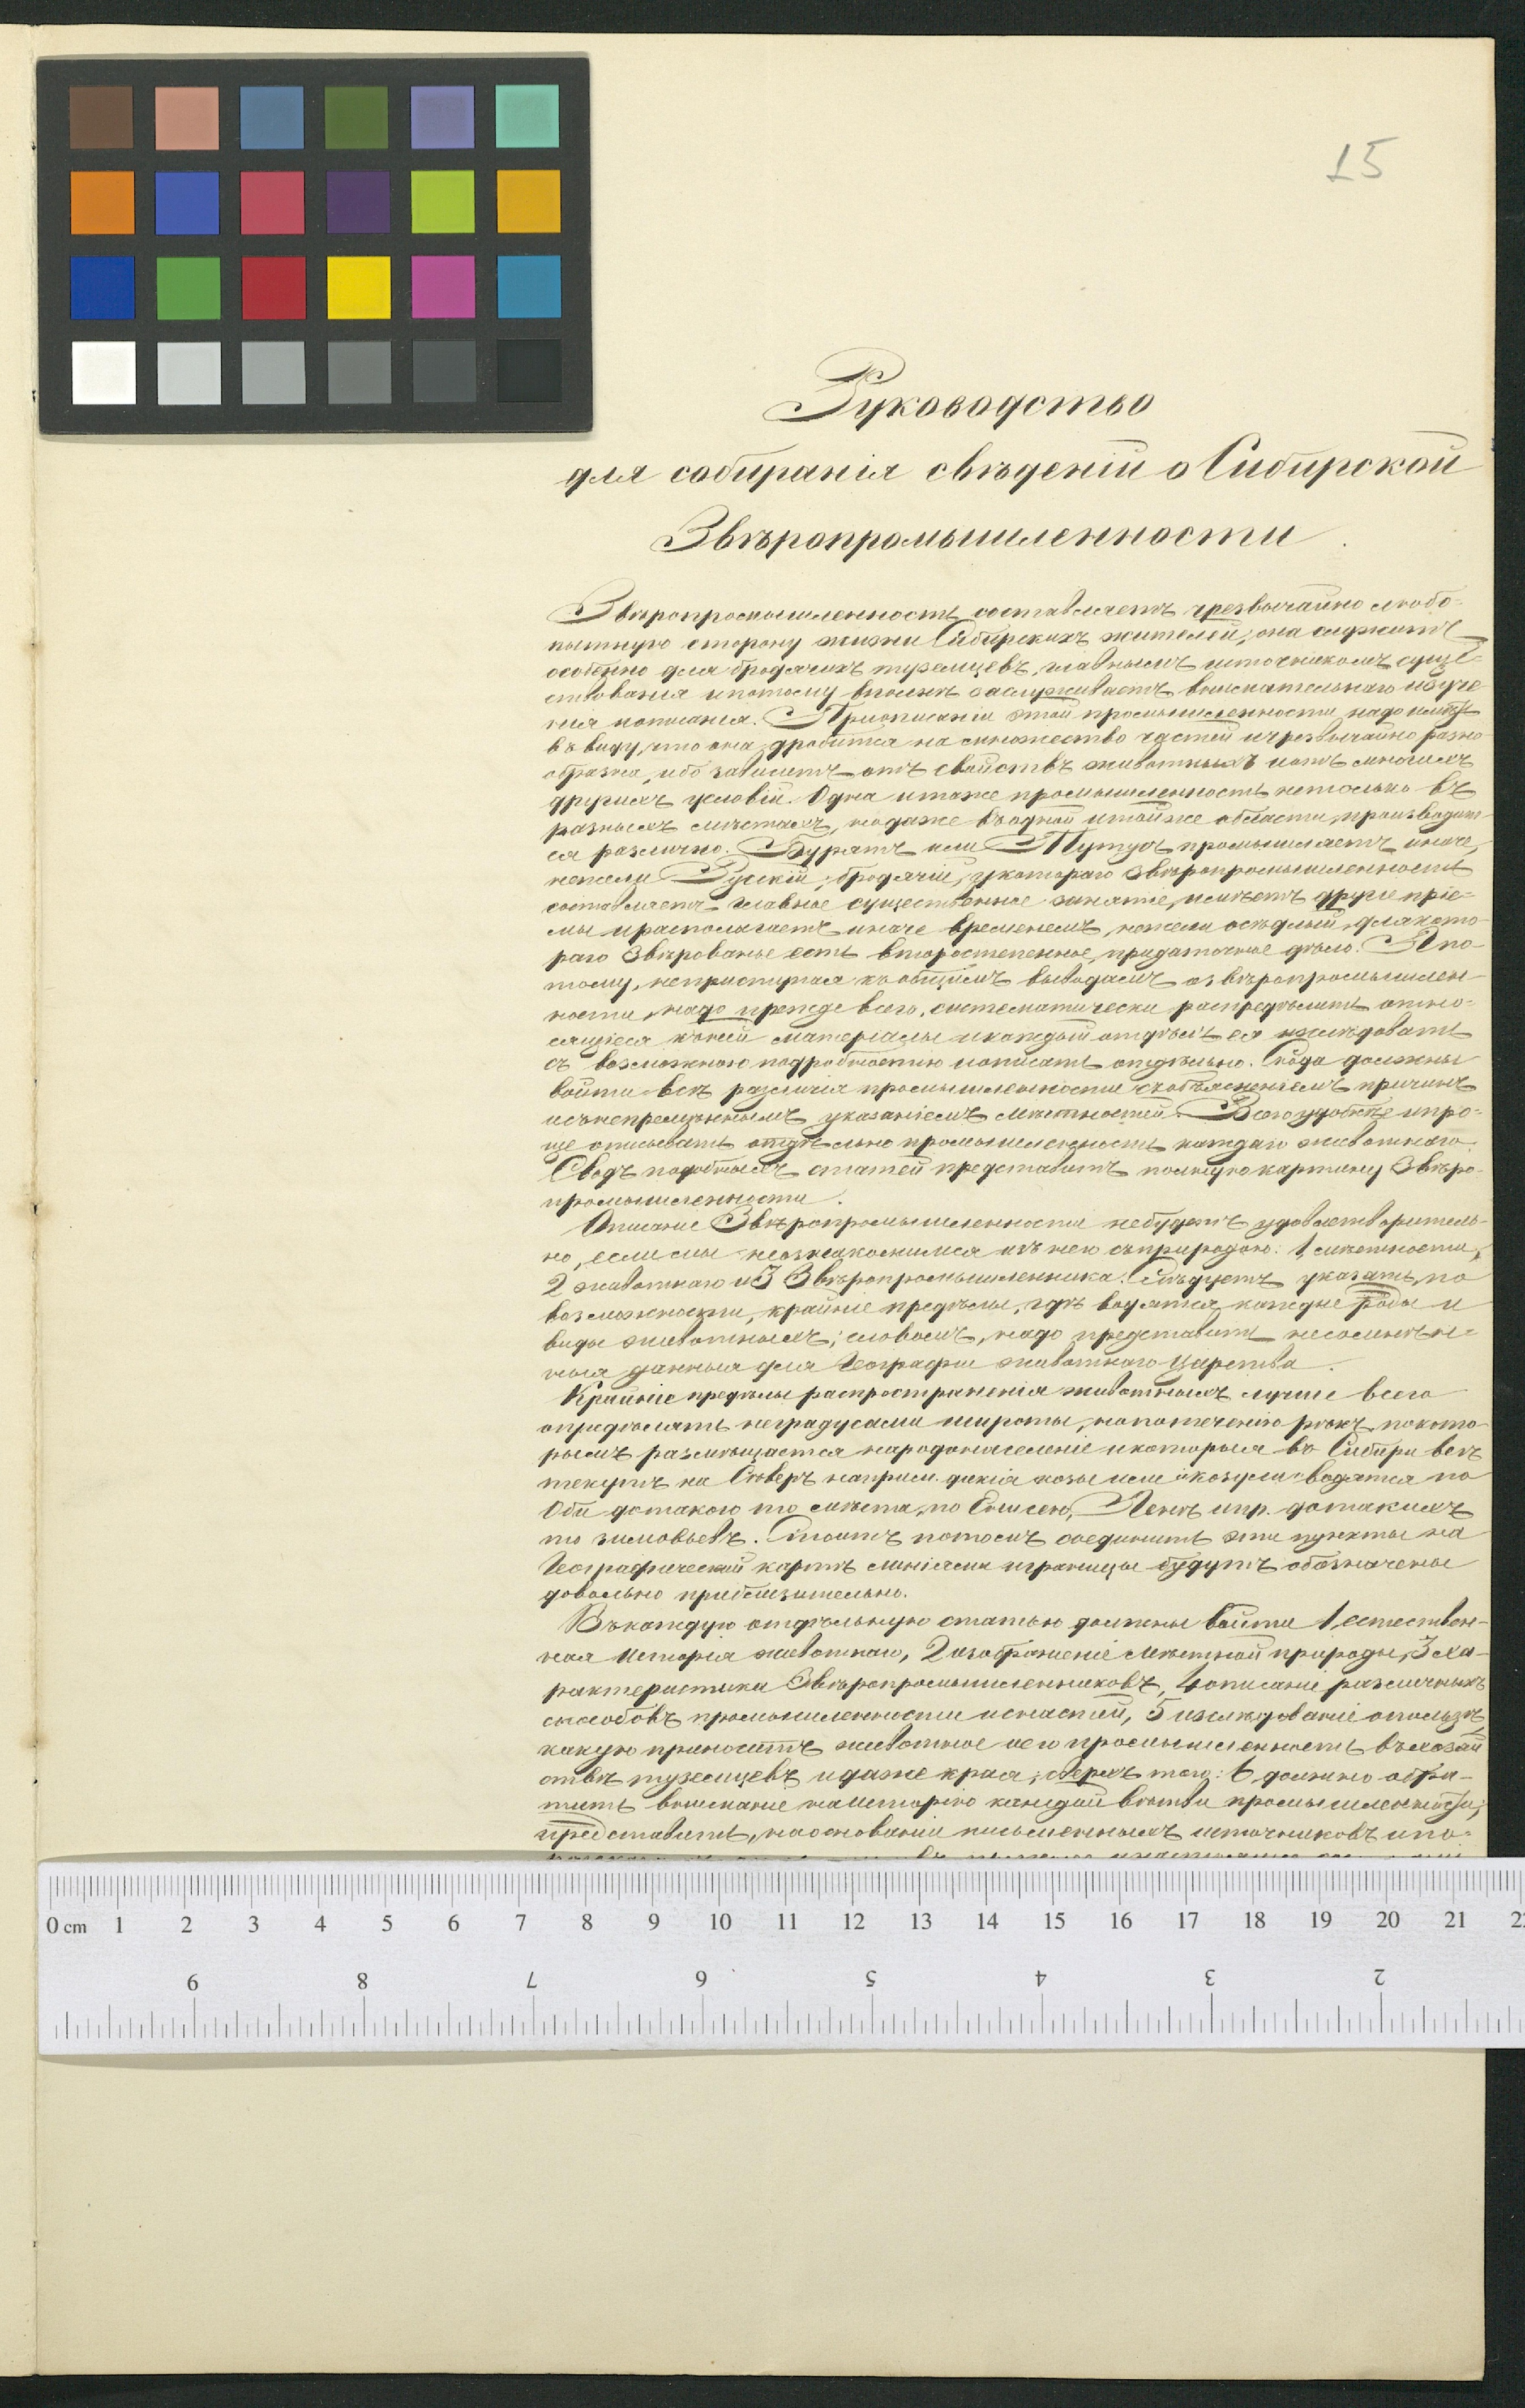 15
Руководство
для собиранія свѣденій о Сибирской
Звѣропромышленности.
Звѣропромышленность составляетъ чрезвычайно любо-
пытную сторону жизни Сибирскихъ жителей; она служитъ
особенно для бродячихъ туземцевъ, главнымъ источникомъ суще-
ствованія и потому вполнѣ заслуживаетъ внимательнаго изуче
нія и описанія. При описаніи этой промышленности надо имѣть
въ виду, что она дробится на множество частей и чрезвычайно разно-
образна, ибо зависитъ отъ свойствъ животныхъ и отъ многихъ
другихъ условій. Одна и таже промышленность не только въ
разныхъ мѣстахъ, но даже въ одной и той же области, производит-
ся различно. Бурятъ или Тунгусъ промышляетъ иначе,
нежели Руский; бродячій, у котораго звѣропромышленность
составляетъ главное существенное занятіе, имѣетъ другіе пріе-
мы и располагаетъ иначе временемъ, нежели осѣдлый, для кото-
раго Звѣрованье есть второстепенное, придаточное дѣло. А по-
тому, не приступая къ общимъ выводамъ о звѣропромышлен-
ности, надо прежде всего, систематически распредѣлить отно-
сящіеся къ ней матеріалы и каждый отдѣлъ ея изслѣдовать
съ возможною подробностію и описать отдѣльно. Сюда должны
войти всѣ различія промышленности съ объясненіемъ причинъ
и съ непремѣннымъ указаніемъ мѣстностей. Всего удобнѣе и про-
ще описывать отдѣльно промышленность каждаго животнаго
Сводъ подобныхъ статей представитъ полную картину Звѣро-
промышленности.
Описаніе Звѣропромышленности не будетъ удовлетворитель-
но, если мы не ознакомимся изъ него съ природою: 1, мѣстности,
2 животнаго и 3 Звѣропромышленника. Слѣдуетъ указать, по
возможности, крайніе предѣлы, гдѣ водятся каждые роды и
виды животныхъ; словомъ, надо представить несомнѣн-
ныя данныя для Географіи животнаго царства.
Крайніе предѣлы распространенія животныхъ лучше всего
опредѣлять не градусами широты, но по теченію рѣкъ, по кото-
рымъ размѣщается народонаселеніе и которыя въ Сибири всѣ
текутъ на Сѣверъ наприм. дикія козы или козули водятся по
Оби до такого то мѣста, по Енисею, Ленѣ и пр. до такихъ
то зимовьевъ. Стоитъ потомъ соединить эти пункты на
Географической картѣ линіями и границы будутъ обозначены
довольно приблизительно.
Въ каждую отдѣльную статью должны войти 1, естествен-
ная исторія животнаго, 2 изображеніе мѣстной природы, 3 ха-
рактеристика Звѣропромышленниковъ, 4 описаніе различныхъ
способовъ промышленности и снастей, 5 изслѣдованіе о пользѣ,
какую приноситъ животное и его промышленность въ хозяй
ствѣ туземцевъ и даже края; сверхъ того: 6, должно обра-
тить вниманіе на исторію каждой вѣтви промышленности;
представить, на основаніи письменныхъ источниковъ и по-
0 cm 1 2 3 4 5 6 7 8 9 10 11 12 13 14 15 16 17 18 19 20 21
9 8 7 6 5 4 3 2